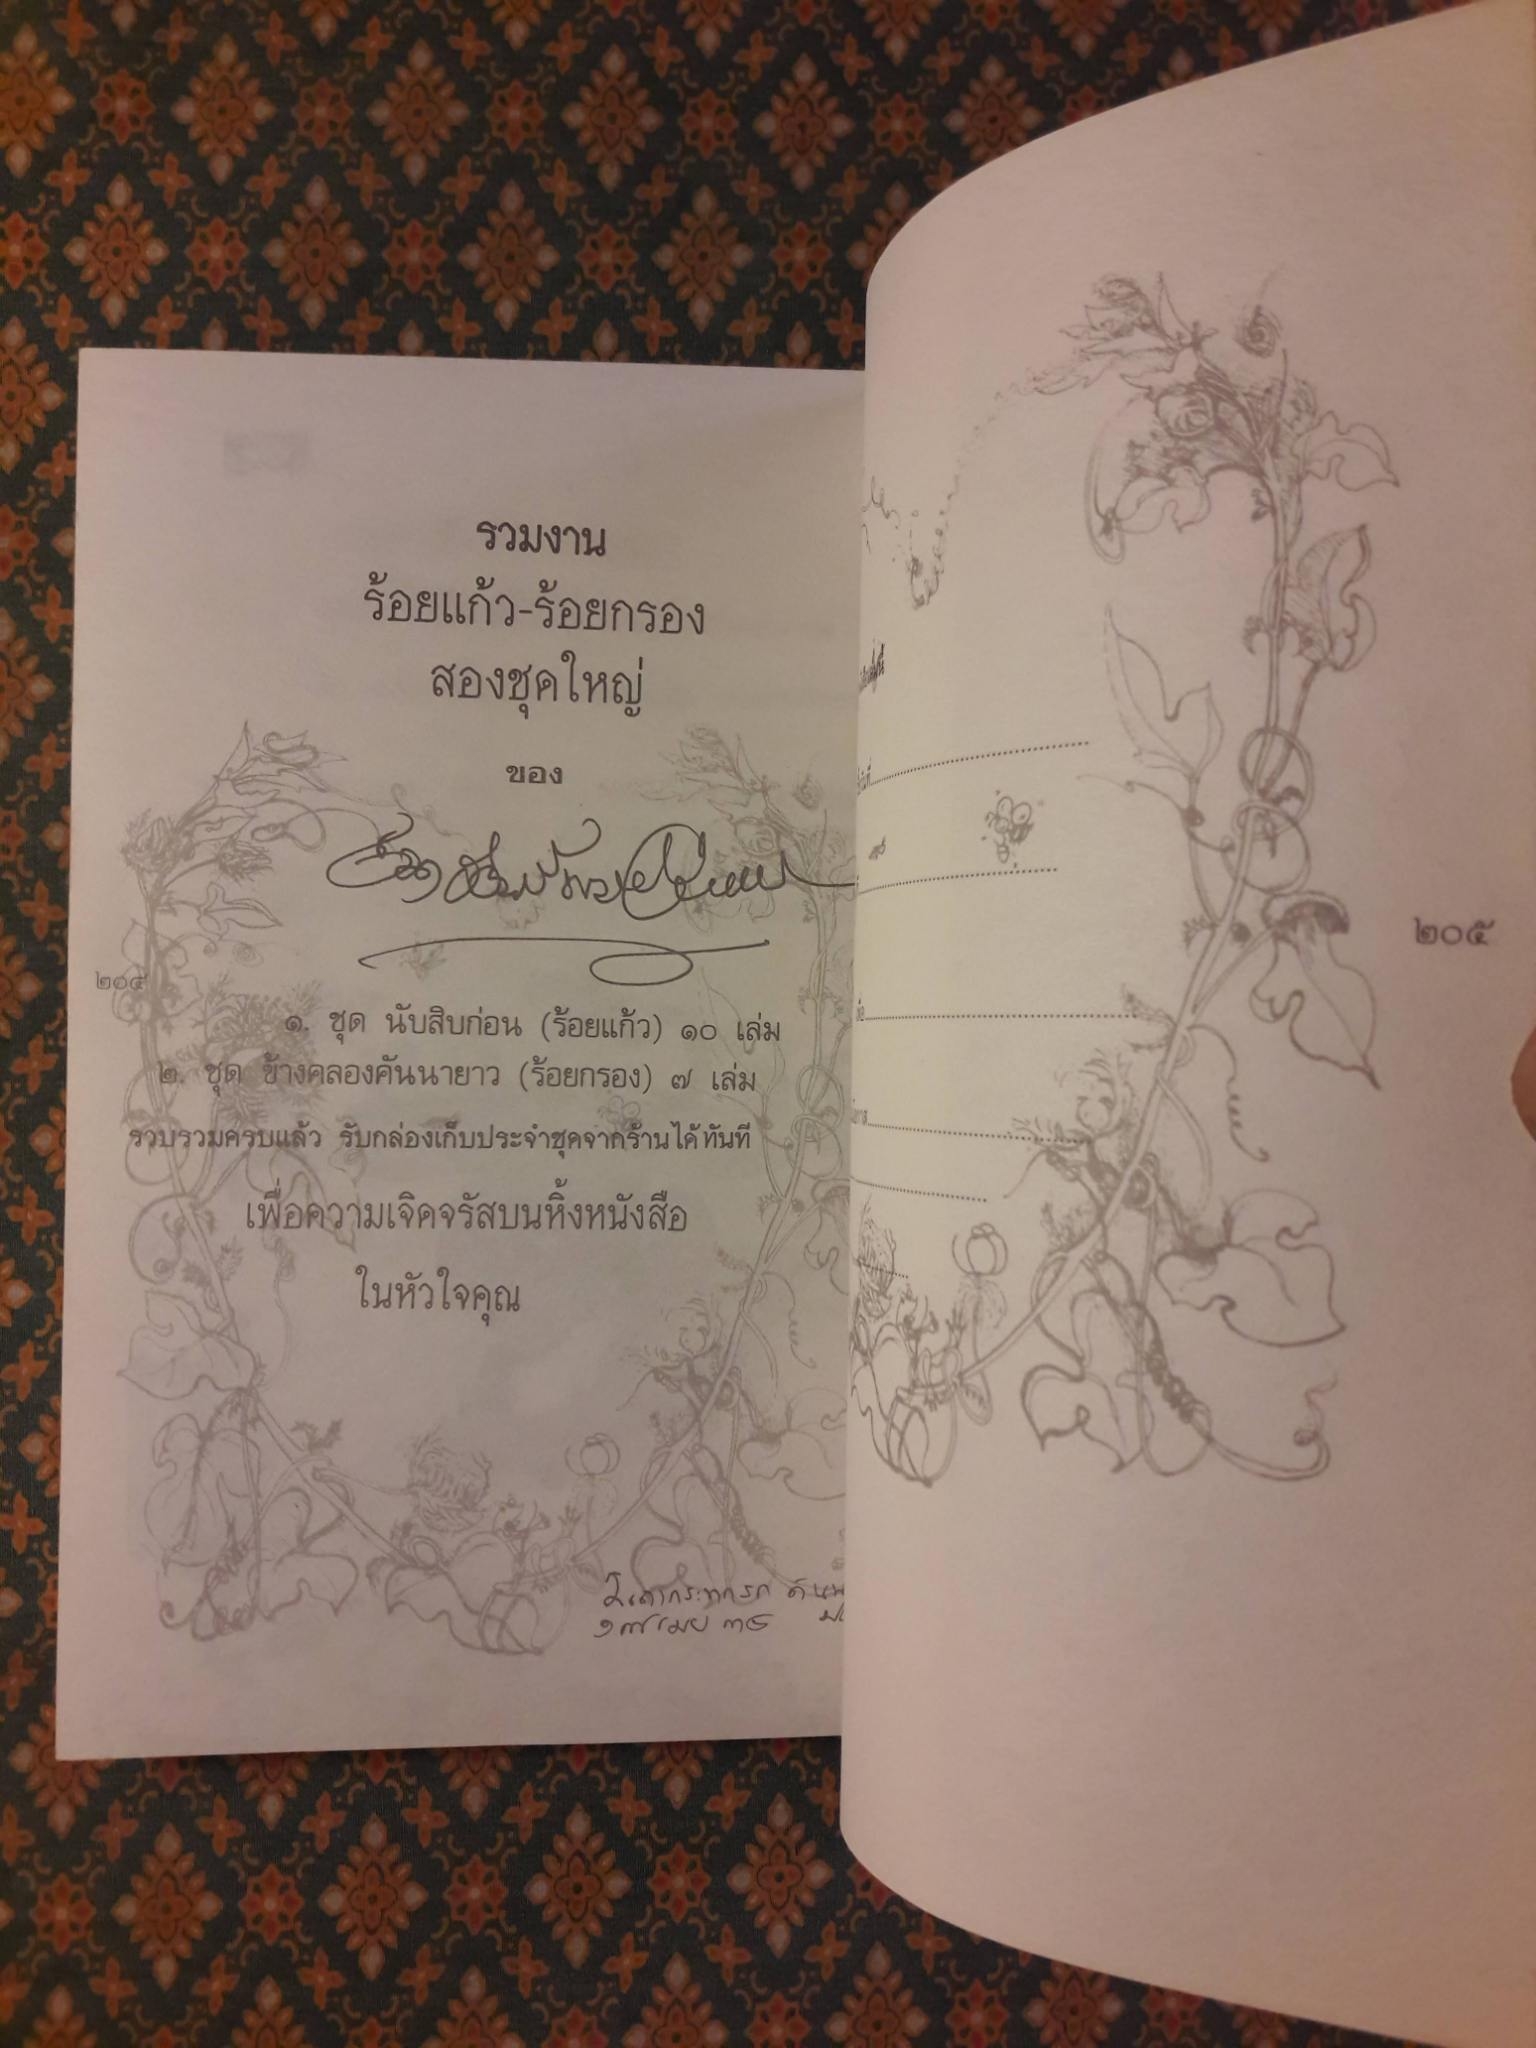 รวมงาน
ร้อยแก้ว-ร้อยกรอง
สองชุดใหญ่
ของ
๒๐๔
๑. ชุด นับสิบก่อน (ร้อยแก้ว) ๑๐ เล่ม
๒. ชุด ข้างคลองคันนายาว (ร้อยกรอง) ๗ เล่ม
รวบรวมครบแล้ว รับกล่องเก็บประจำชุดจากร้านได้ทันที
เพื่อความเจิดจรัสบนหิ้งหนังสือ
ในหัวใจคุณ
๒๐๕